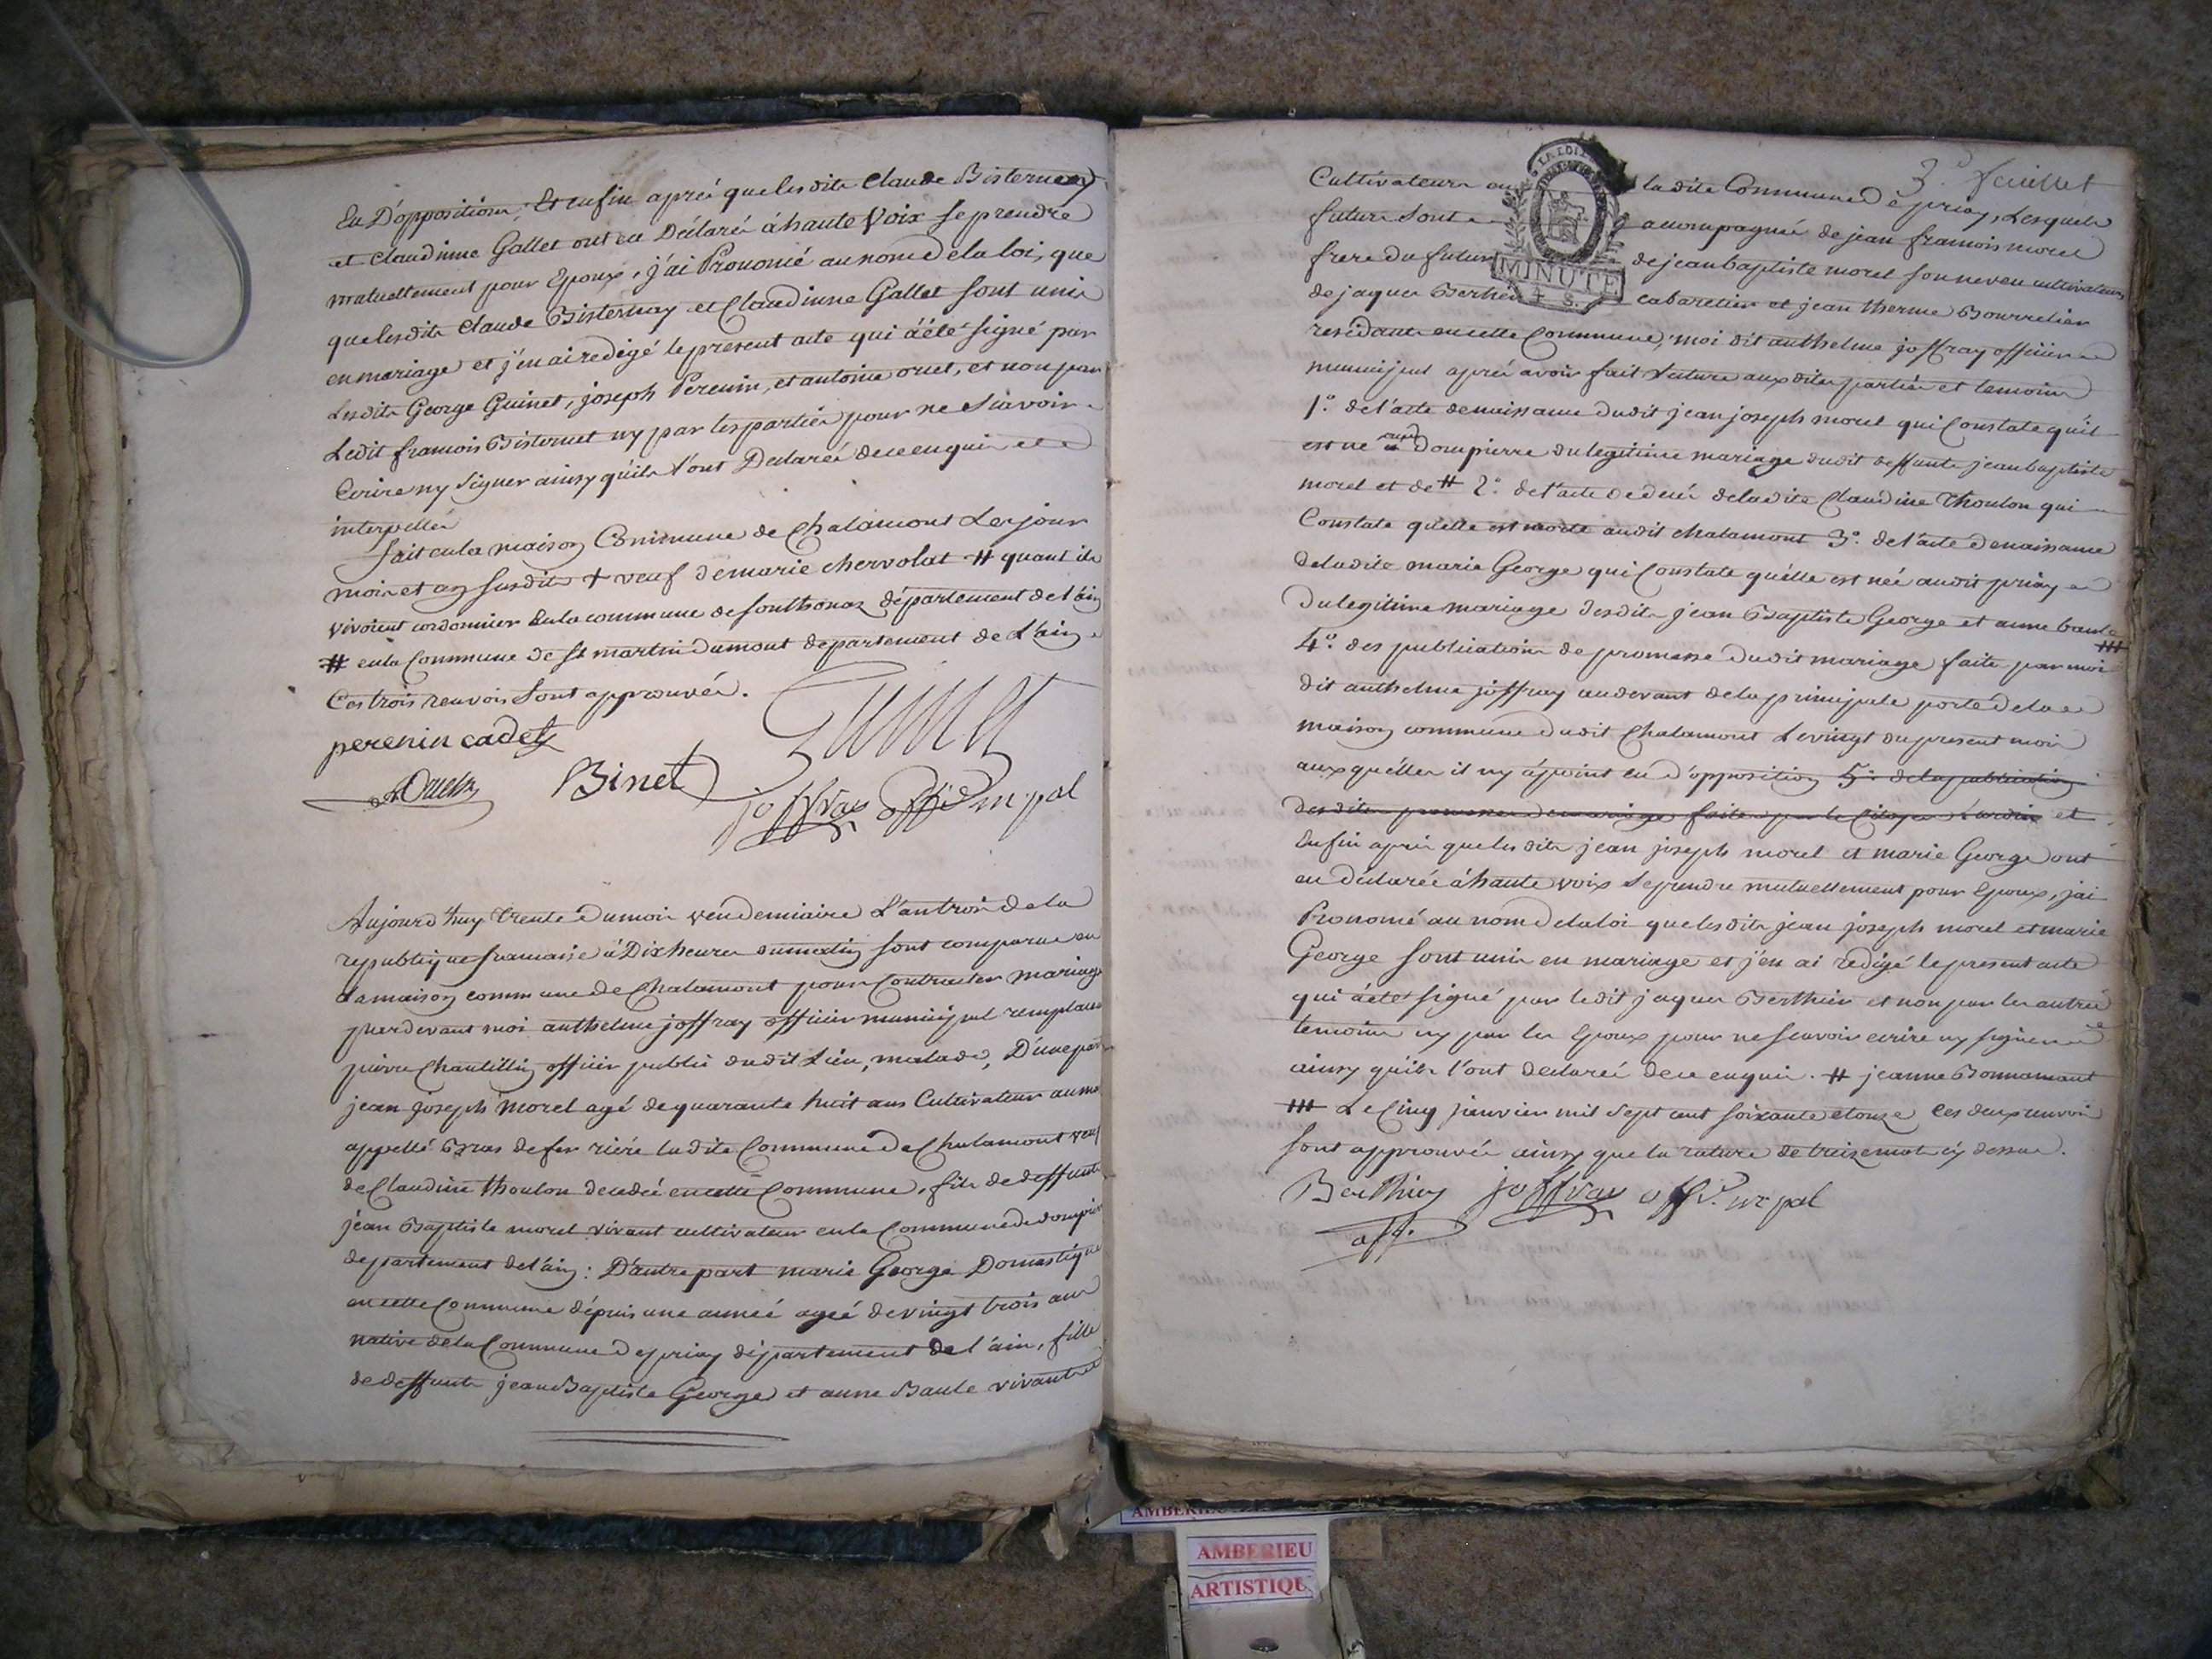 Eu D'opposition, Et enfin aprés que lesdits Claude Bisternay
et Claudinne Gallet ont eu Déclaré à haute Voix se prendre
mutuellement pour Epoux, j'ai Prononcé au nom de la loi, que
que lesdits Claude Bisternay et Claudinne Gallet sont unis
en mariage et j'en ai redigé le present acte qui a été signé par
Lesdits George Guinet, joseph Perenin, et antoine oruel, et non par
Ledit francois Bisternet ny par les parties pour ne sçavoir
Ecrire ny signer ainsy qu'ils l'ont Declarés de ce enquis
interpellés
fait en la maison Commune de Chalamont Les jour
mois et an susdits + veuf de marie chervolat # quant ils
vivoient cordonnier En la commune de département de l'ain
# en la Commune de St martin dumont departement de L'ain
Ces trois renvois sont approuvés.
perenin cadet
Guinet
Binet
joffray offier m pal
Aujourd'huy trente du mois vendemiaire L'an trois de la
republique francaise à Dix heures du matin sont comparus en
la maison commune de Chalamont pour Contracter mariage
pardevant moi anthelme joffray officier municipal remplacant
pierre Chantillin officier public dudit Lieu, malade, D'une part
jean joseph morel agé de quarante huit ans Cultivateur au mas
appellé Bras de fer riére ladite Commune de Chalamont veuf
de Claudine thoulon décédée en cette Commune, fils de deffunts
jean Baptiste morel vivant cultivateur en la Commune de dompierre
departement de l'ain: D'autre part marie George Domestique
en cette Commune dépuis une année agée de vingt trois ans
native de la Commune de priay département de l'ain, fille
de deffunts jean Baptiste George et anne Baule vivants
3e feuillet
LA LOI
MINUTE
4 S.
Cultivateurs en ladite Commune de priay, Lesquels
futurs sont accompagnés de jean francois morel
frere du futur de jean baptiste morel son neveu cultivateurs
de jaques Berthier cabaretier et jean therme Bourrelier
residants en cette Commune; moi dit anthelme joffray officier
municipal aprés avoir fait lecture aux dites parties et temoins
1.° de l'acte de naissance dudit jean joseph morel qui Constate qu'il
est né Dompierre du legitime mariage dudit deffunts jean baptiste
morel et de # 2.° de l'acte de decés de ladite Claudine Thoulon qui
Constate qu'elle est morte audit chalamont 3.° de l'acte de naissance
de ladite marie George qui Constate qu'elle est née audit priay
du legitime mariage desdits jean Baptiste George et anne baule #
4.° des publications de promesse dudit mariage faite par moi
dit anthelme joffray au devant de la principale porte de la
maison commune dudit Chalamont Le vingt du present mois
auxquelles il ny a point eu d'opposition 5.° de la publication
desdites promesses de mariage faite par le Citoyen et
Enfin aprés que lesdits jean joseph morel et marie George ont
eu déclarée à haute voix se prendre mutuellement pour Epoux, j'ai
Prononcé au nom de la loi que lesdits jean joseph morel et marie
George sont unis en mariage et j'en ai redigé le present acte
qui a été signé par ledit jaques Berthier et non par les autres
temoins ny par les Epoux pour ne scavoir ecrire ny signer
ainsy qu'ils l'ont declarés de ce enquis. # jeanne Bonnamant
# Le Cinq janvier mil sept cent soixante et onze Ces deux renvois
sont approuvés ainsy que la rature de treize mots cy dessus.
Berthier joffray offier m pal